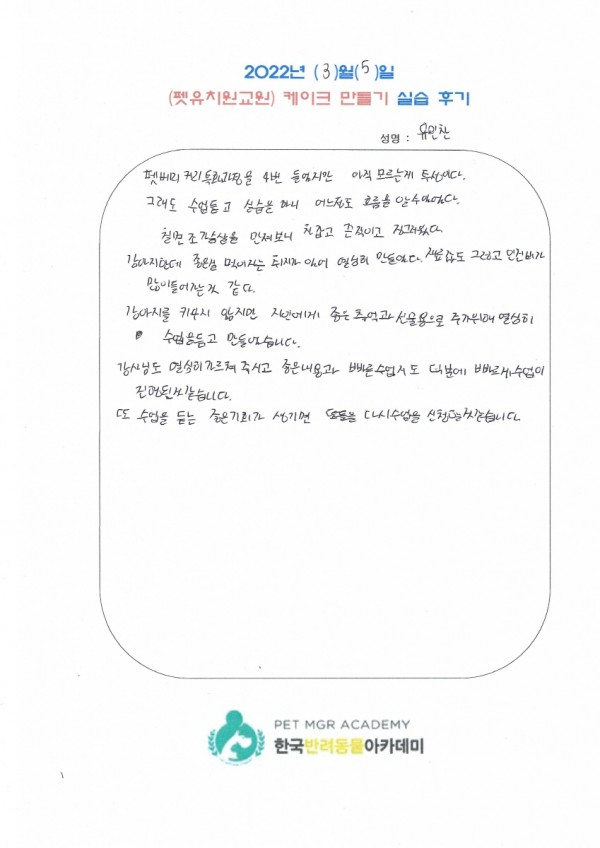 2022년 (3)월(5)일
(펫유치원교원) 케이크 만들기 실습 후기
성명 : 유민찬
펫베이커리특화과정을 4번 들었지만 아직 모르는게 투성이다.
그래도 수업듣고 실습을 하니 어느정도 흐름을 알수있었다.
칠면조가슴살을 만져보니 차갑고 끈적이고 징그러웠다.
강아지한테 좋은걸 먹이자는 취지가 있어 열심히 만들었다. 재료손도 그렇고 인건비가
많이들어가는것 같다.
강아지를 키우지 않지만 지인에게 좋은 추억과 선물용으로 주기위해 열심히
수업을듣고 만들었습니다.
강사님도 열심히가르쳐 주시고 좋은내용과 빠른수업시도 덕분에 빠르게수업이
진행된거같습니다.
또 수업을 듣는 좋은기회가 생기면 다시수업을 신청할것같습니다.
PET MGR ACADEMY
한국반려동물아카데미